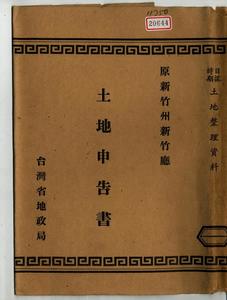 11250
20644
日據時期 土地整理資料
原新竹州新竹廳
土地申告書
台灣省地政局